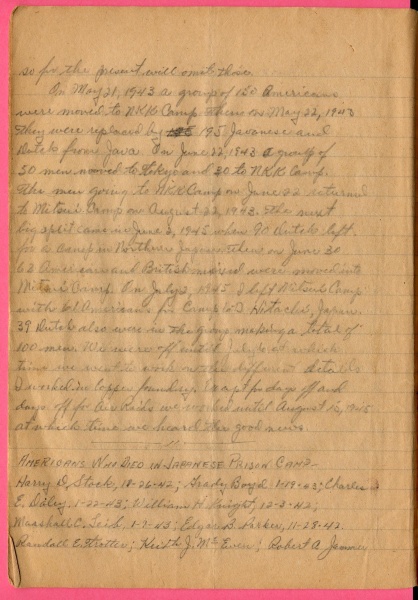 so for the present will omit those.
On May 21, 1943 a group of 150 Americans
were moved to NKK Camp. Then on May 22, 1943
they were replaced by 195 Javanese and
Dutch from Java. On June 22, 1943 a group of
50 men moved to Tokyo and 30 to NKK Camp.
The men going to NKK Camp on June 22 returned
to Mitsui Camp on August 22, 1943. The next
big split came in June 3, 1945 when 90 Dutch left
for a camp in Northern Japan. Then on June 30
62 Americans and British mixed were moved into
Mitsui Camp. On July 2, 1945 I left Mitsui Camp
with 61 Americans for Camp Hitachi, Japan.
39 Dutch also were in the group making a total of
100 men. We were off until July at which
time we went to work on the different details
I worked in copper foundry. Except for days off and
days off for Air Raids we worked until August 15, 945
at which time we heard the good news.
AMERICANS WHO DIED IN JAPANESE PRISON CAMP-
Harry D. Stock, 12-26-42; Grady Boyd 1-18-43; Charles
E. Daley. 1-22-43; William H. Knight, 12-3-42;
Marshall C. 1-7-43; Edgar B. Parker, 11-28-42
Randall E. Stratton; Keith J. McEwen; Robert A.